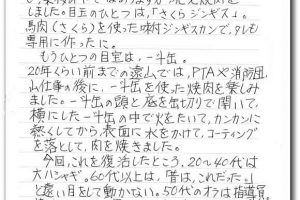 しました。目玉のひとつは、「さくらジンギス」。
馬肉(さくら)を使った味付ジンギスカンで、タレも
専用に作ったに。
もうひとつの目玉は、一斗缶。
20年くらい前までの遠山では、PTAや消防団、
山仕事の後に、一斗缶を使った焼肉を楽しみ
ました。一斗缶の頭と底を缶切りで開いて、
横にした一斗缶の中で火をたいて、カンカンに
熱くしてから、表面に水をかけて、コーティング
を落として、肉を焼きました。
今回、これを復活したところ、20～40代は
大ハシャギ。60代以上は、「昔は、これだった。」
と遠い目をして動かない。50代のオラは指導員。